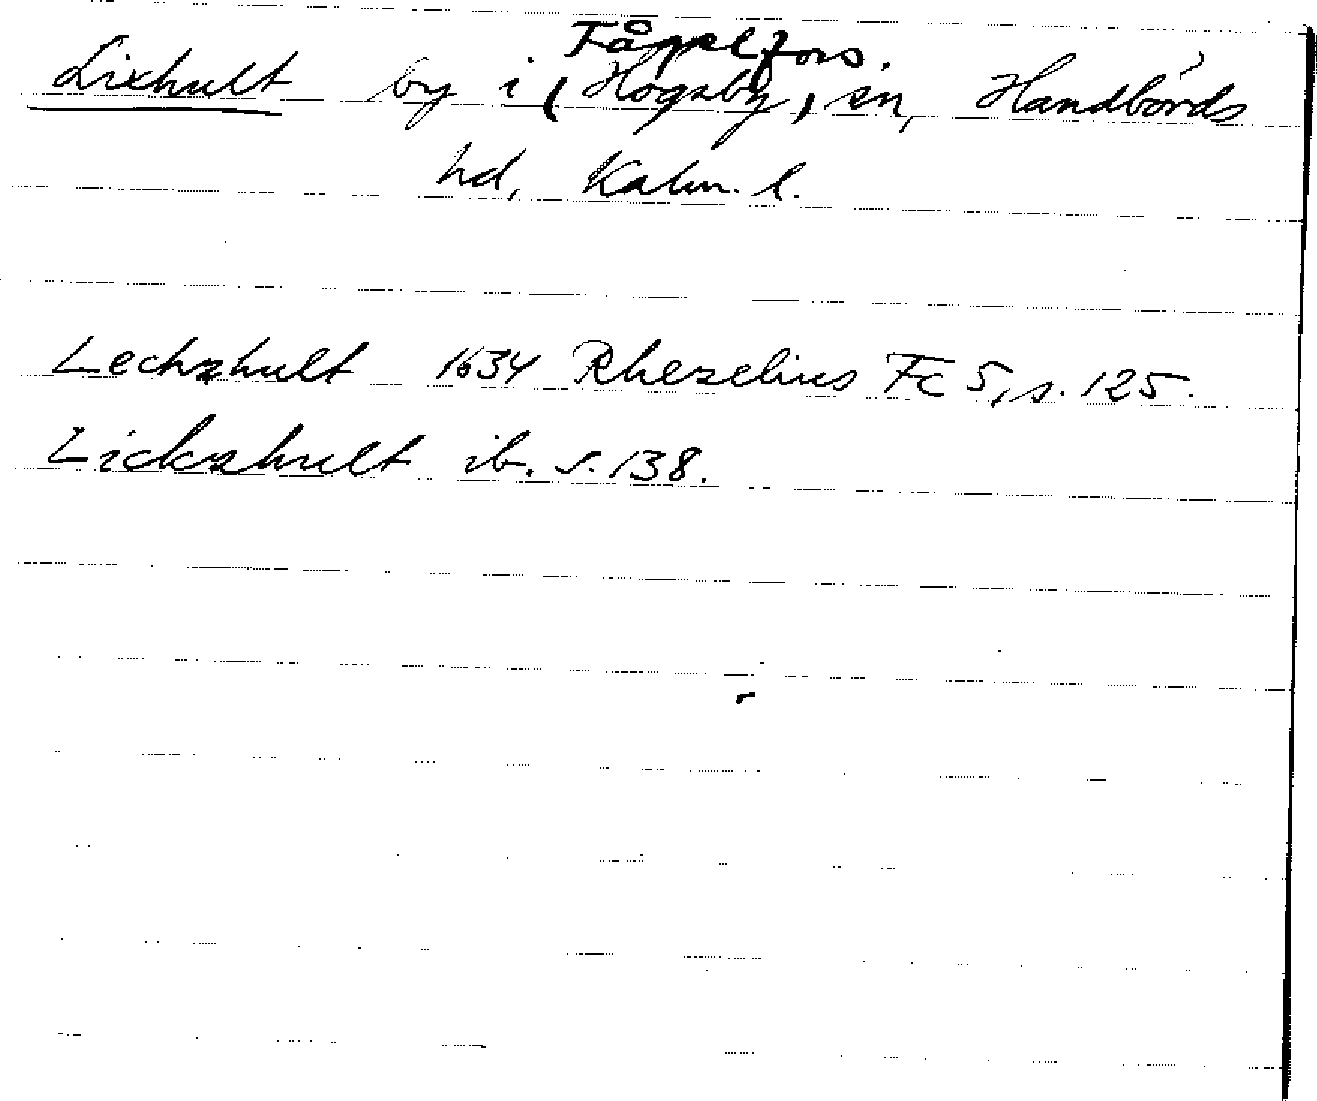 Fågelfors.
Lixhult by i (Högsby) sn, Handbörds
hd, Kalm. l.
Lechshult 1634 Rhezelius Fc 5, s. 125.
Lickshult ib. s. 138.